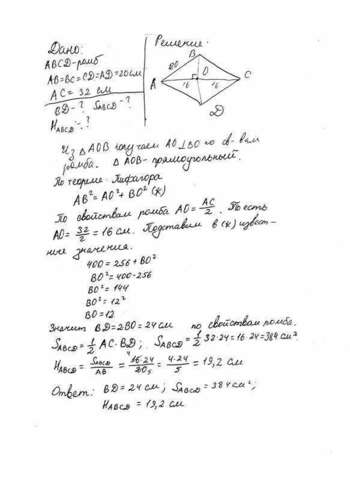 Дано:
ABCD-ромб
AB=BC=CD=AD=20см
AC = 32 см
BD-? S_ABCD-?
H_ABCD-?
Решение:
B
20
A
O
C
16
16
D
Из △AOB получаем AO⊥BO по св-вам
ромба. △AOB-прямоугольный.
По теореме Пифагора
AB²=AO²+BO² (*)
По свойствам ромба AO=AC/2. То есть
AO=32/2=16 см. Подставим в (*) извест-
ные значения.
400=256+BO²
BO²=400-256
BO²=144
BO²=12²
BO=12
Значит BD=2BO=24см по свойствам ромба.
S_ABCD=1/2 AC·BD; S_ABCD=1/2 32·24=16·24=384 см²
H_ABCD=S_ABCD/AB=16·24/20=4·24/5=19,2 см
Ответ: BD=24 см; S_ABCD=384 см²;
H_ABCD=19,2 см